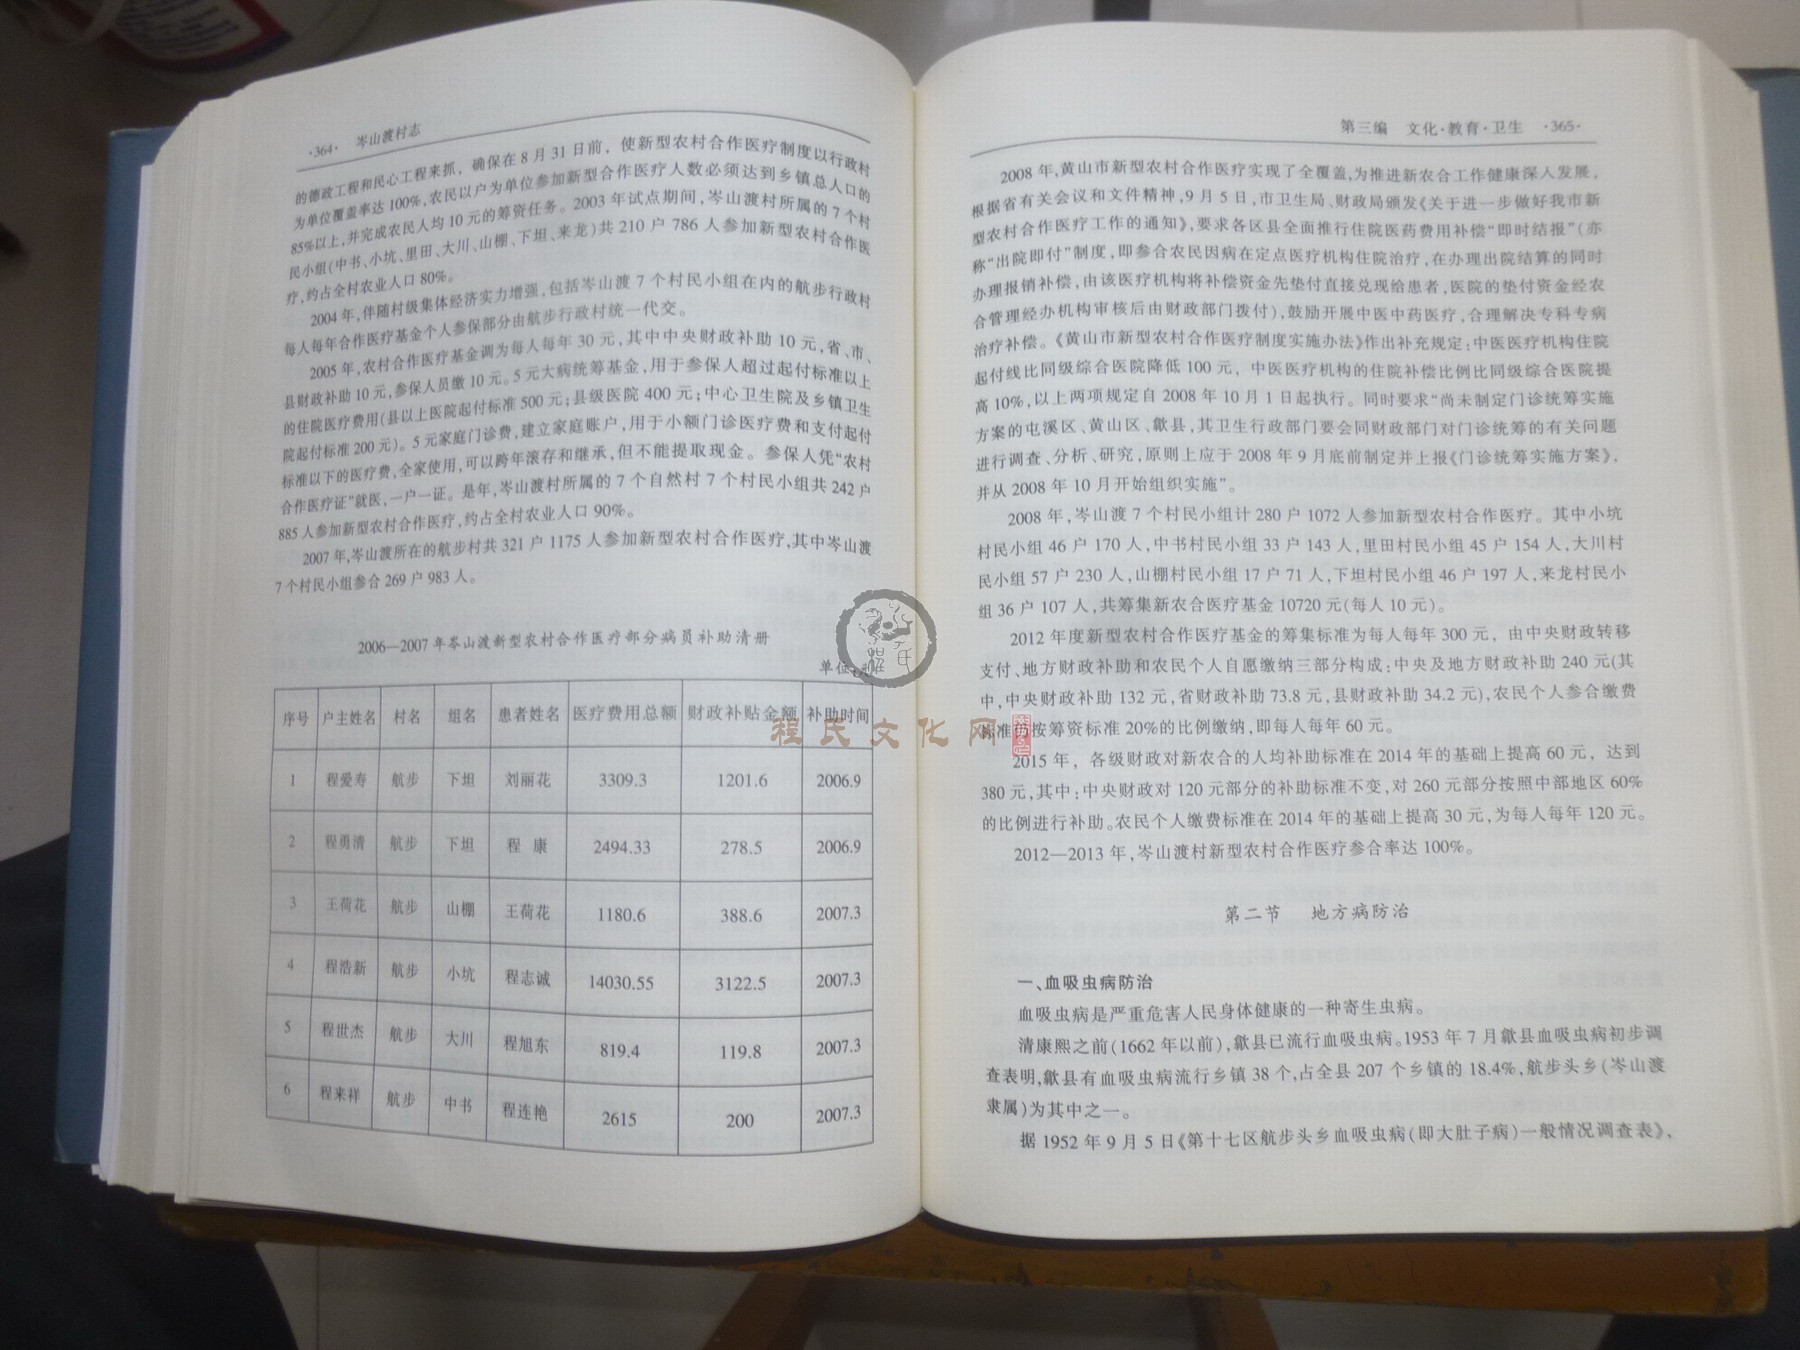 ·364· 岑山渡村志
的德政工程和民心工程来抓，确保在8月31日前，使新型农村合作医疗制度以行政村
为单位覆盖率达100%，农民以户为单位参加新型合作医疗人数必须达到乡镇总人口的
85%以上，并完成农民人均10元的筹资任务。2003年试点期间，岑山渡村所属的7个村
民小组(中书、小坑、里田、大川、山棚、下坦、来龙)共210户786人参加新型农村合作医
疗，约占全村农业人口80%。
2004年，伴随村级集体经济实力增强，包括岑山渡7个村民小组在内的航步行政村
每人每年合作医疗基金个人参保部分由航步行政村统一代交。
2005年，农村合作医疗基金调为每人每年30元，其中中央财政补助10元，省、市、
县财政补助10元，参保人员缴10元。5元大病统筹基金，用于参保人超过起付标准以上
的住院医疗费用(县以上医院起付标准500元；县级医院400元；中心卫生院及乡镇卫生
院起付标准200元)。5元家庭门诊费，建立家庭账户，用于小额门诊医疗费和支付起付
标准以下的医疗费，全家使用，可以跨年滚存和继承，但不能提取现金。参保人凭“农村
合作医疗证”就医，一户一证。是年，岑山渡村所属的7个自然村7个村民小组共242户
885人参加新型农村合作医疗，约占全村农业人口90%。
2007年，岑山渡所在的航步村共321户1175人参加新型农村合作医疗，其中岑山渡
7个村民小组参合269户983人。
2006—2007年岑山渡新型农村合作医疗部分病员补助清册
单位：元
序号 户主姓名 村名 组名 患者姓名 医疗费用总额 财政补贴金额 补助时间
1 程爱寿 航步 下坦 刘丽花 3309.3 1201.6 2006.9
2 程勇清 航步 下坦 程 康 2494.33 278.5 2006.9
3 王荷花 航步 山棚 王荷花 1180.6 388.6 2007.3
4 程浩新 航步 小坑 程志诚 14030.55 3122.5 2007.3
5 程世杰 航步 大川 程旭东 819.4 119.8 2007.3
6 程来祥 航步 中书 程连艳 2615 200 2007.3
程氏文化网
第三编 文化·教育·卫生 ·365·
2008年，黄山市新型农村合作医疗实现了全覆盖，为推进新农合工作健康深入发展，
根据省有关会议和文件精神，9月5日，市卫生局、财政局颁发《关于进一步做好我市新
型农村合作医疗工作的通知》，要求各区县全面推行住院医药费用补偿“即时结报”(亦
称“出院即付”制度，即参合农民因病在定点医疗机构住院治疗，在办理出院结算的同时
办理报销补偿，由该医疗机构将补偿资金先垫付直接兑现给患者，医院的垫付资金经农
合管理经办机构审核后由财政部门拨付)，鼓励开展中医中药医疗，合理解决专科专病
治疗补偿。《黄山市新型农村合作医疗制度实施办法》作出补充规定：中医医疗机构住院
起付线比同级综合医院降低100元，中医医疗机构的住院补偿比例比同级综合医院提
高10%，以上两项规定自2008年10月1日起执行。同时要求“尚未制定门诊统筹实施
方案的屯溪区、黄山区、歙县，其卫生行政部门要会同财政部门对门诊统筹的有关问题
进行调查、分析、研究，原则上应于2008年9月底前制定并上报《门诊统筹实施方案》，
并从2008年10月开始组织实施”。
2008年，岑山渡7个村民小组计280户1072人参加新型农村合作医疗。其中小坑
村民小组46户170人，中书村民小组33户143人，里田村民小组45户154人，大川村
民小组57户230人，山棚村民小组17户71人，下坦村民小组46户197人，来龙村民小
组36户107人，共筹集新农合医疗基金10720元(每人10元)。
2012年度新型农村合作医疗基金的筹集标准为每人每年300元，由中央财政转移
支付、地方财政补助和农民个人自愿缴纳三部分构成：中央及地方财政补助240元(其
中，中央财政补助132元，省财政补助73.8元，县财政补助34.2元)，农民个人参合缴费
标准仍按筹资标准20%的比例缴纳，即每人每年60元。
2015年，各级财政对新农合的人均补助标准在2014年的基础上提高60元，达到
380元，其中：中央财政对120元部分的补助标准不变，对260元部分按照中部地区60%
的比例进行补助。农民个人缴费标准在2014年的基础上提高30元，为每人每年120元。
2012—2013年，岑山渡村新型农村合作医疗参合率达100%。
第二节 地方病防治
一、血吸虫病防治
血吸虫病是严重危害人民身体健康的一种寄生虫病。
清康熙之前(1662年以前)，歙县已流行血吸虫病。1953年7月歙县血吸虫病初步调
查表明，歙县有血吸虫病流行乡镇38个，占全县207个乡镇的18.4%，航步头乡(岑山渡
隶属)为其中之一。
据1952年9月5日《第十七区航步头乡血吸虫病(即大肚子病)一般情况调查表》，